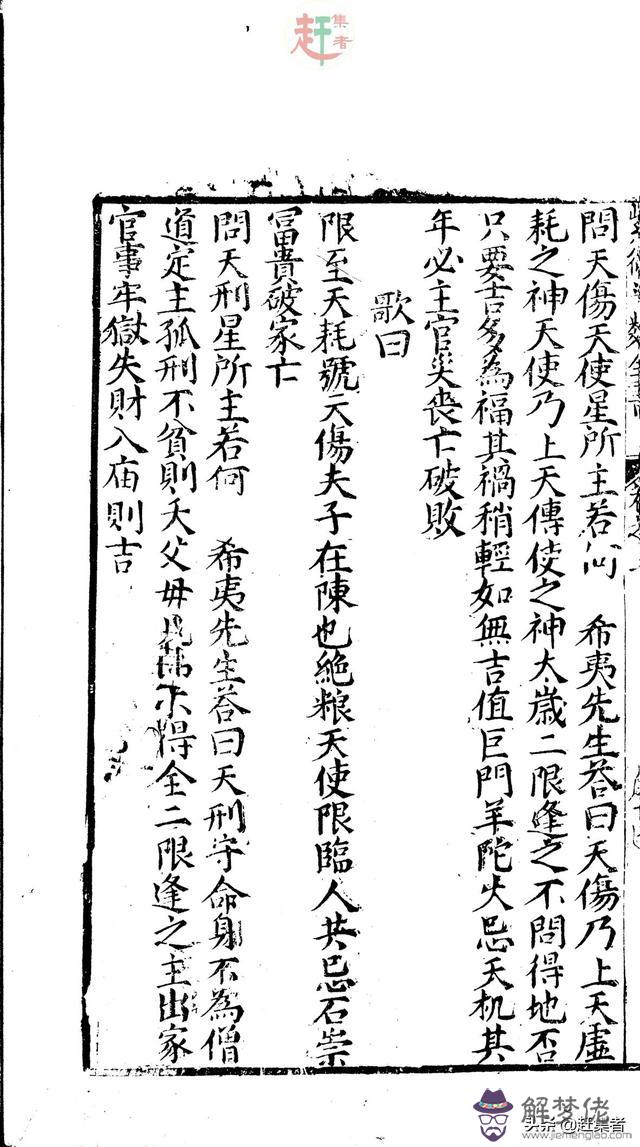 赶集者
問天傷天使星所主若何　希夷先生荅曰天傷乃上天虛
耗之神天使乃上天傳使之神太歲二限逢之不問得地否
只要吉多為福其禍稍輕如無吉值巨門羊陀火忌天机其
年必主官災喪亡破敗
歌曰
限至天耗號天傷夫子在陳也絕粮天使限臨人共忌石崇
冨貴破家亡
問天刑星所主若何　希夷先生荅曰天刑守命身不為僧
道定主孤刑不貧則夭父母兄弟不得全二限逢之主出家
官事牢獄失財入庙則吉
解梦佬
www.jiemenglao.com
头条@赶集者